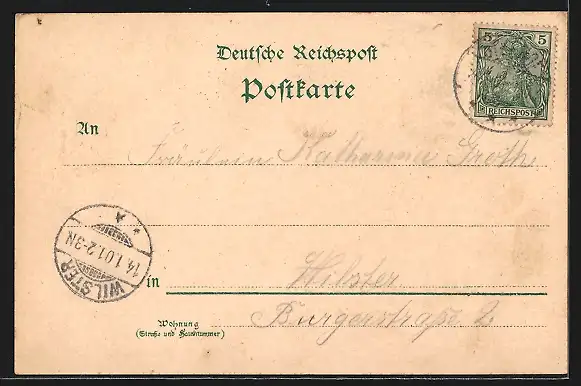 Deutsche Reichspost
Postkarte
5 5
REICHSPOST
An
Fräulein Katharina Grothe
WILSTER
14.1.01.2-3N
in Wilster
Burgerstraße 2
Wohnung
(Straße und Hausnummer)